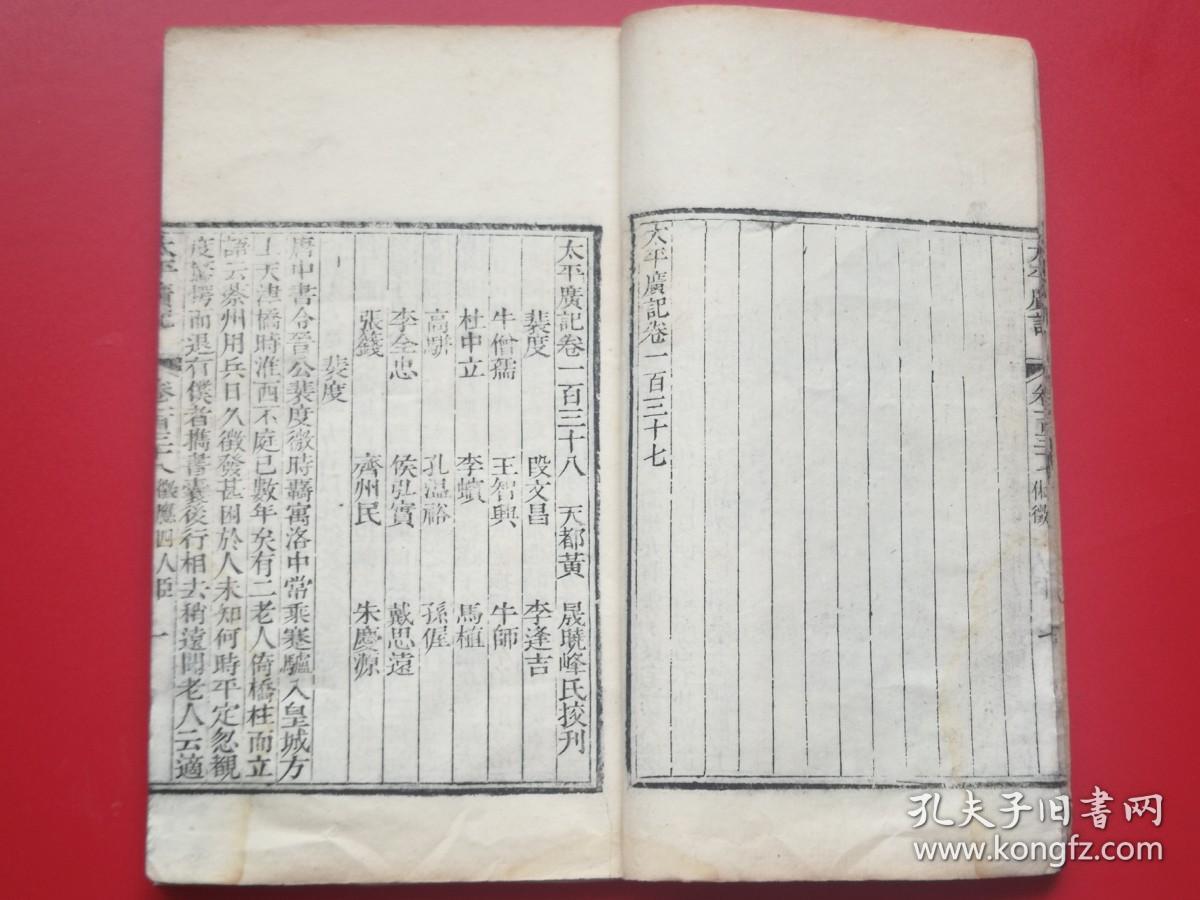 太平廣記 卷一百三十七 休徵 七
太平廣記卷一百三十七
太平廣記卷一百三十八 天都黃 晟曉峰氏挍刊
裴度 段文昌 李逢吉
牛僧孺 王智興 牛師
杜中立 李蠙 馬植
高駢 孔溫裕 孫偓
李全忠 侯弘實 戴思遠
張籛 齊州民 朱慶源
裴度
唐中書令晉公裴度微時羇寓洛中常乘蹇驢入皇城方
上天津橋時淮西不庭已數年矣有二老人倚橋柱而立
語云蔡州用兵日久徵發甚困於人未知何時平定忽覩
度驚愕而退有僕者攜書囊後行相去稍遠聞老人云適
太平廣記 卷一百三十八 徵應四人臣 一
孔夫子旧书网
www.kongfz.com